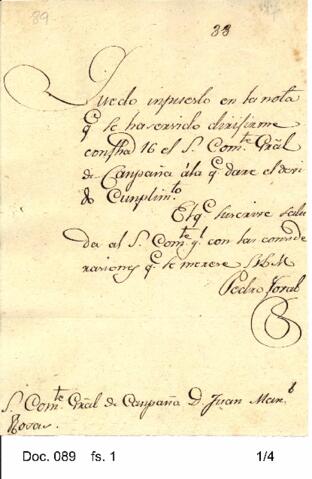 89
33
Quedo inpuesto en la nota
q.e se ha servido dirifirme
con fha 16 el S. Com.te Gral
de Canpaña á la q.e dare el devi
do Cunplim.to
El q.e suscrive salu
da al S. Com.te g.l con las conside
raciones q.e se merece S.B.M
Pedro
S. Com.te Gral de Canpaña D. Juan Man.l
Rosas
Doc. 089 fs. 1 1/4